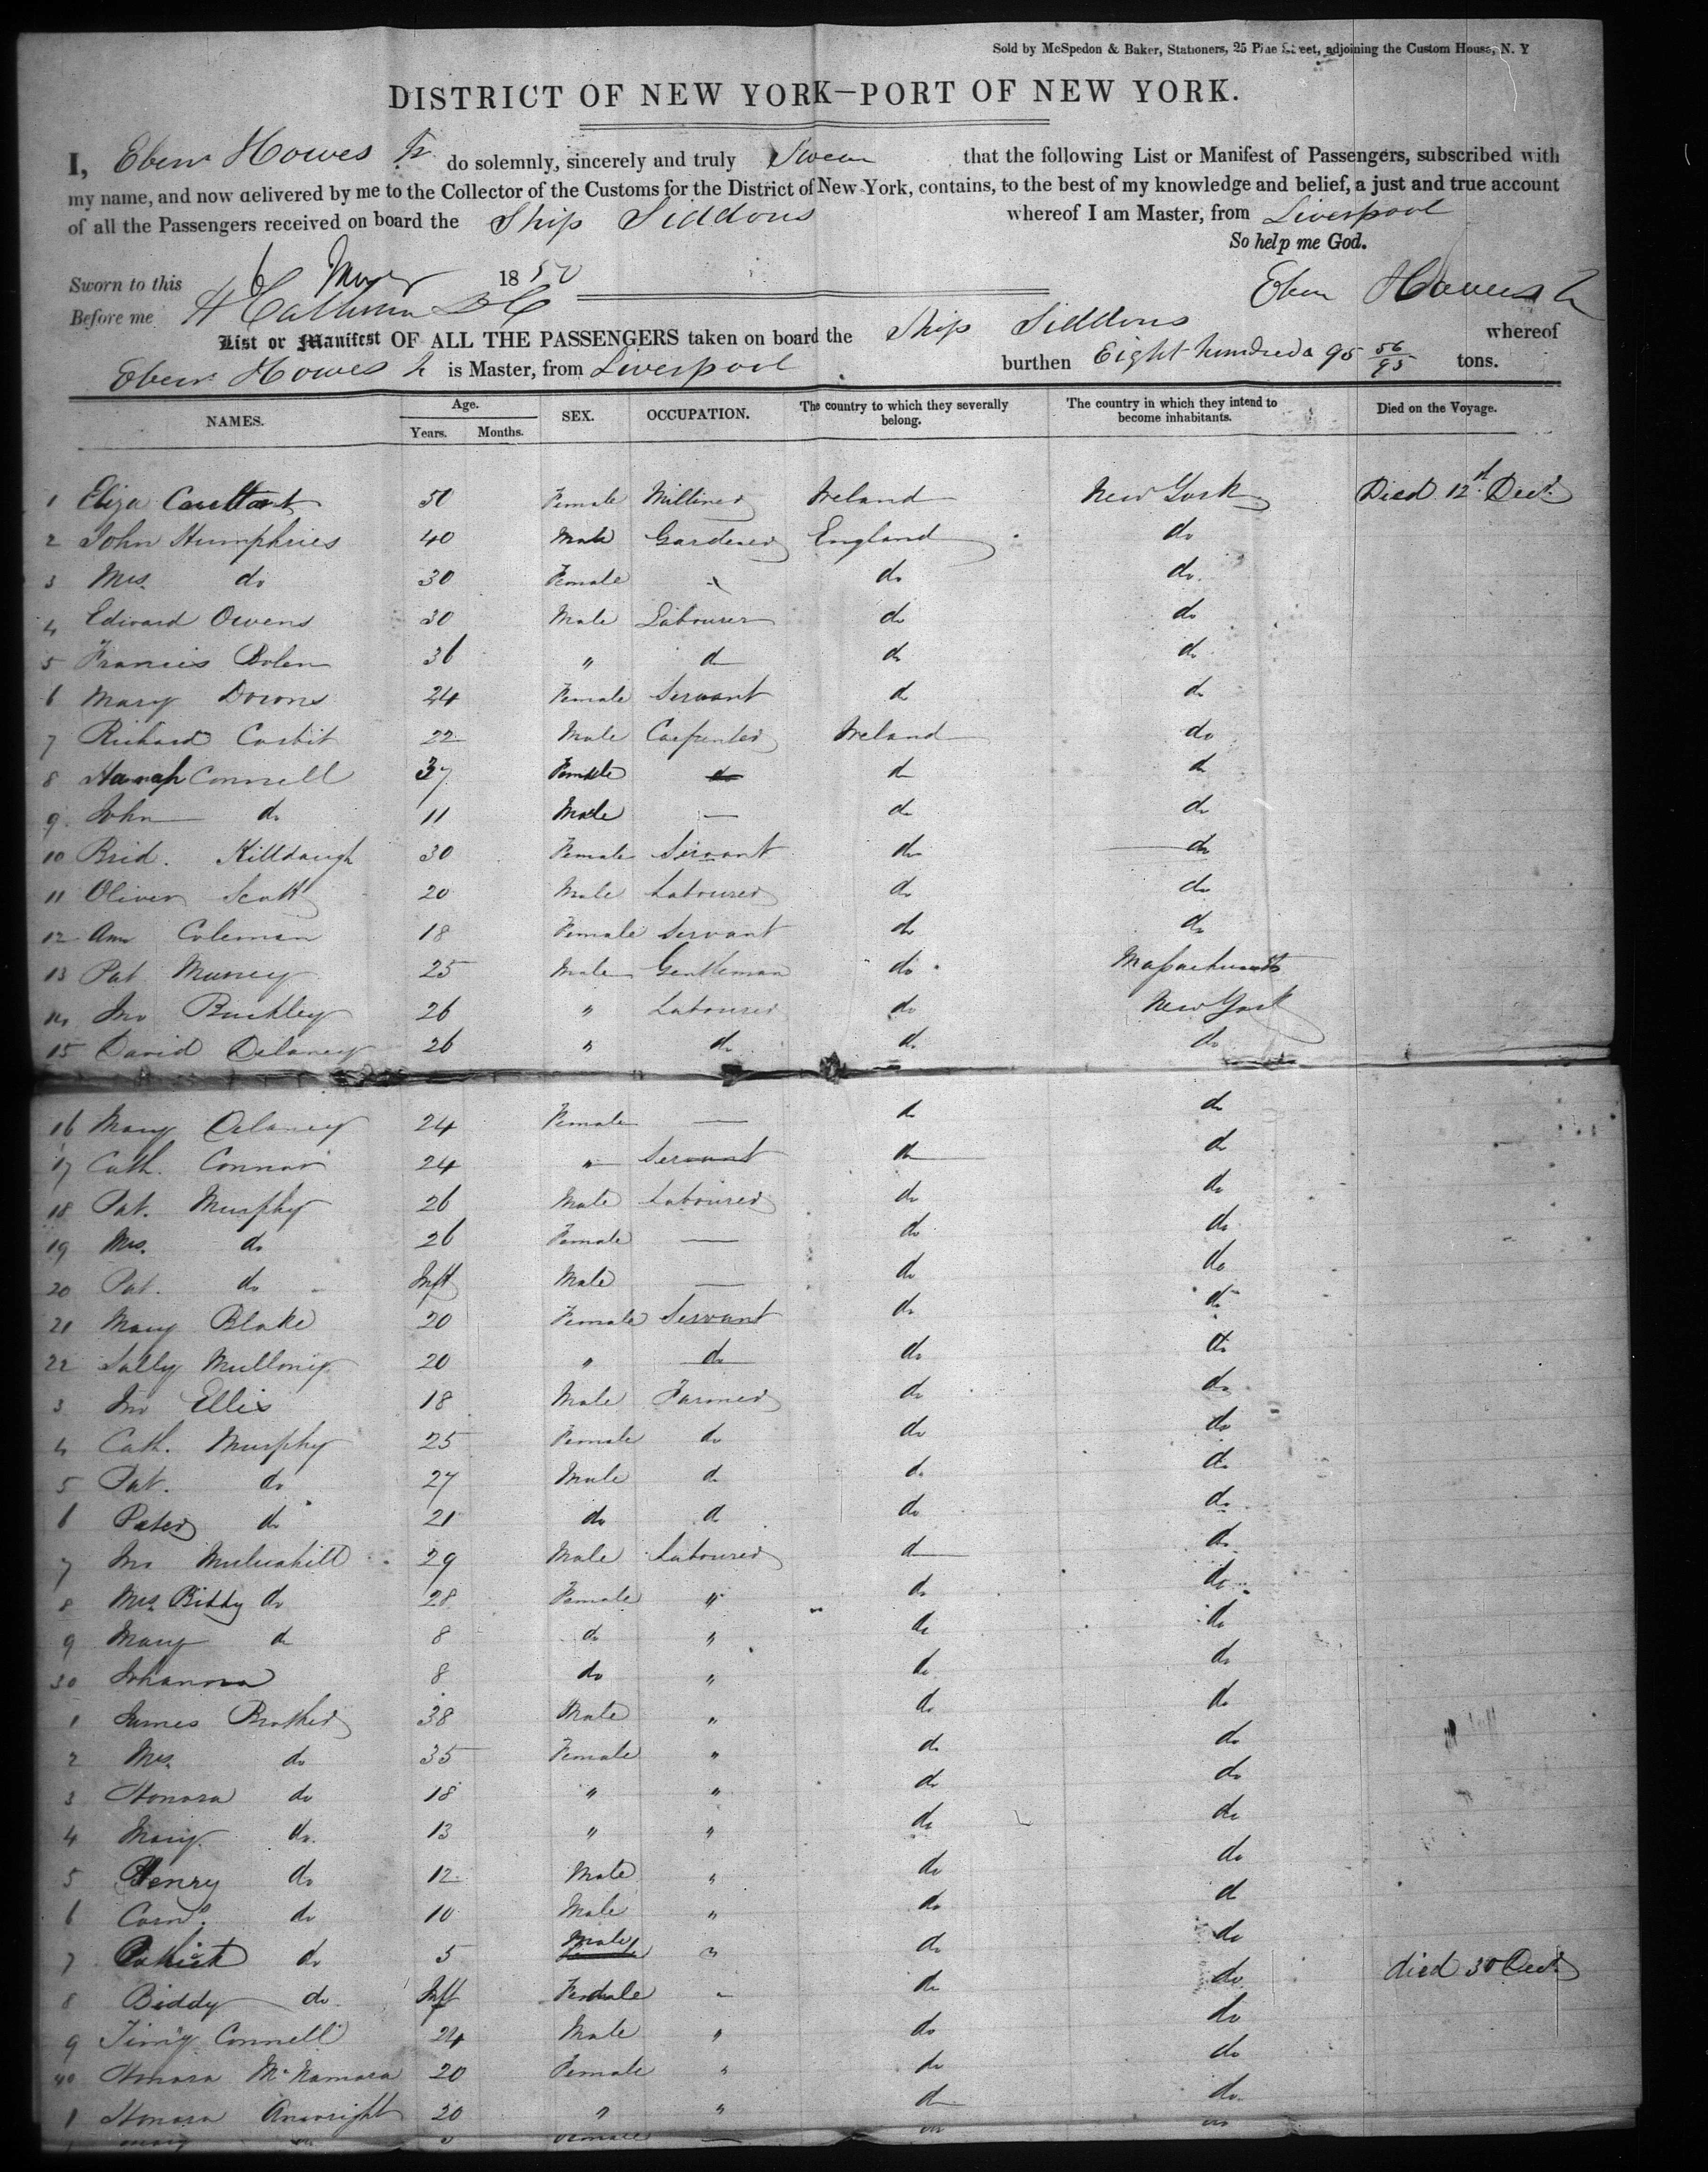 Sold by McSpedon & Baker, Stationers, 25 Pine Street, adjoining the Custom House, N. Y
DISTRICT OF NEW YORK—PORT OF NEW YORK.
I, Eben Howes Jr do solemnly, sincerely and truly Swear that the following List or Manifest of Passengers, subscribed with
my name, and now delivered by me to the Collector of the Customs for the District of New York, contains, to the best of my knowledge and belief, a just and true account
of all the Passengers received on board the Ship Siddons whereof I am Master, from Liverpool
So help me God.
Sworn to this 6 1850
Eben Howes Jr
Before me
List or Manifest OF ALL THE PASSENGERS taken on board the Ship Siddons whereof
Eben Howes Jr is Master, from Liverpool burthen Eight hundred & 95 56/95 tons.
NAMES. Age. Years. Months. SEX. OCCUPATION. The country to which they severally belong. The country in which they intend to become inhabitants. Died on the Voyage.
1 Eliza 50 Female Milliner Ireland New York Died 12th Dect.
2 John Humphries 40 Male Gardener England do
3 Mrs. do 30 Female do do
4 Edward Owens 30 Male Labourer do do
5 Francis Bolen 36 " do do do
6 Mary Downs 24 Female Servant do do
7 Richard Corbit 22 Male Carpenter Ireland do
8 Hanah Connell 37 Female do do do
9 John do 11 Male — do do
10 Brid. Killdaugh 30 Female Servant do do
11 Oliver Scott 20 Male Labourer do do
12 Ann Coleman 18 Female Servant do do
13 Pat Murrey 25 Male Gentleman do Massachusetts
14 Jno Buckley 26 " Labourer do New York
15 David Delaney 26 " do do do
16 Mary Delaney 24 Female — do do
17 Cath. Connor 24 " Servant do do
18 Pat. Murphy 26 Male Labourer do do
19 Mrs. do 26 Female — do do
20 Pat. do Inft Male — do do
21 Mary Blake 20 Female Servant do do
22 Sally Mullony 20 " do do do
3 Jno Ellis 18 Male Farmer do do
4 Cath. Murphy 25 Female do do do
5 Pat. do 27 Male do do do
6 Peter do 21 do do do do
7 Jno Mulcahill 29 Male Labourer do do
8 Mrs. Bitty do 28 Female " do do
9 Mary do 8 do " do do
30 Johanna 8 do " do do
1 James Brother 38 Male " do do
2 Mrs. do 35 Female " do do
3 Honora do 18 " " do do
4 Mary do. 13 " " do do
5 Henry do 12 Male " do do
6 Corns. do 10 Male " do do
7 Patrick do 5 Male " do do
8 Biddy do Inft Female " do do died 30 Dect.
9 Tim'y Connell 24 Male " do do
40 Honora McNamara 20 Female " do do
1 Honora 20 " " do do